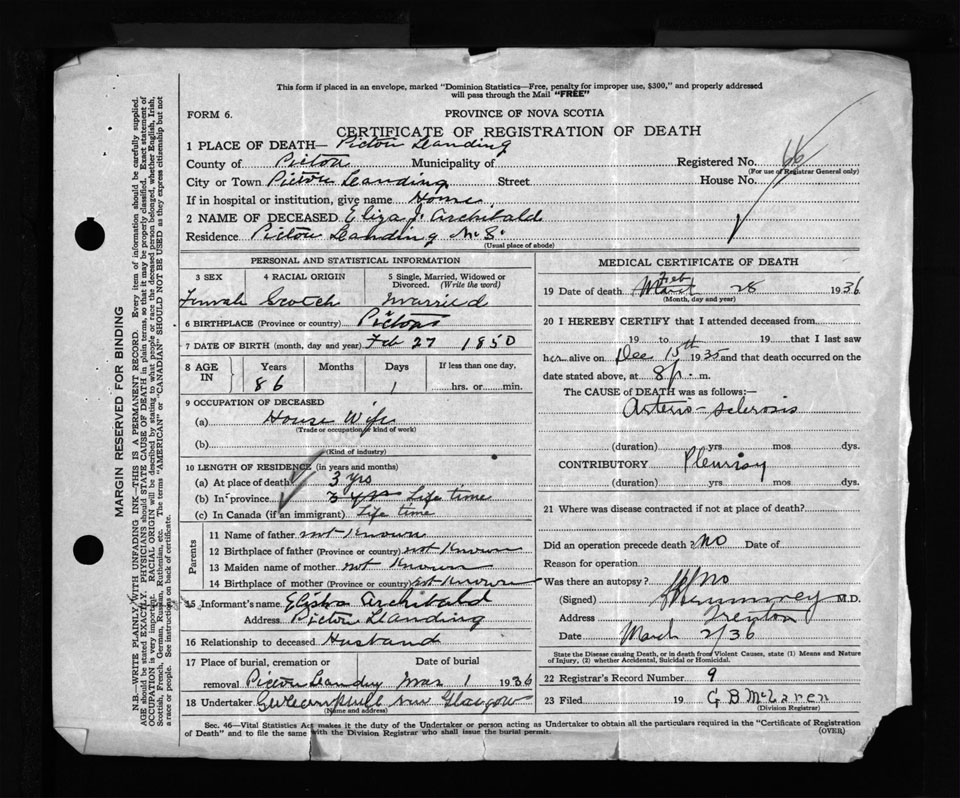 This form if placed in an envelope, marked "Dominion Statistics—Free, penalty for improper use, $300," and properly addressed
will pass through the Mail "FREE"
FORM 6.
PROVINCE OF NOVA SCOTIA
CERTIFICATE OF REGISTRATION OF DEATH
1 PLACE OF DEATH— Pictou Leanding
County of Pictou Municipality of Registered No. 46
(For use of Registrar General only)
City or Town Pictou Leanding Street House No.
If in hospital or institution, give name Home
2 NAME OF DECEASED Eliza J. Archibald
Residence Pictou Leanding N.S.
(Usual place of abode)
PERSONAL AND STATISTICAL INFORMATION
3 SEX 4 RACIAL ORIGIN 5 Single, Married, Widowed or
Divorced. (Write the word)
Femah Scotch Married
6 BIRTHPLACE (Province or country) Pictou
7 DATE OF BIRTH (month, day and year) Feb 27 1850
8 AGE IN Years Months Days If less than one day,
86 1 hrs. or min.
9 OCCUPATION OF DECEASED
(a) House Wife
(Trade or occupation or kind of work)
(b)
(Kind of industry)
10 LENGTH OF RESIDENCE (in years and months)
(a) At place of death 3 yrs
(b) In province 3 yrs Life time
(c) In Canada (if an immigrant) Life time
Parents
11 Name of father not Known
12 Birthplace of father (Province or country) not Known
13 Maiden name of mother not Known
14 Birthplace of mother (Province or country) not Known
15 Informant's name Elisha Archibald
Address Pictou Leanding
16 Relationship to deceased Husband
17 Place of burial, cremation or Date of burial
removal Pictou Leanding Mar 1 1936
18 Undertaker New Glasgow
(Name and address)
MEDICAL CERTIFICATE OF DEATH
19 Date of death March Feb 28 1936
(Month, day and year)
20 I HEREBY CERTIFY that I attended deceased from
19 to 19 that I last saw
her alive on Dec 15th 1935 and that death occurred on
date stated above, at 8 p. m.
The CAUSE of DEATH was as follows:
Arterio-sclerosis
(duration) yrs. mos. dys.
CONTRIBUTORY Pleurisy
(duration) yrs. mos. dys.
21 Where was disease contracted if not at place of death?
Did an operation precede death? No Date of
Reason for operation
Was there an autopsy? No
(Signed) M.D.
Address Trenton
Date March 2/36
State the Disease causing Death, or in death from Violent Causes, state (1) Means and Nature
of Injury, (2) whether Accidental, Suicidal or Homicidal.
22 Registrar's Record Number 9
23 Filed 19 G B McLaren
(Division Registrar)
Sec. 46—Vital Statistics Act makes it the duty of the Undertaker or person acting as Undertaker to obtain all the particulars required in the "Certificate of Registration
of Death" and to file the same with the Division Registrar who shall issue the burial permit. (OVER)
MARGIN RESERVED FOR BINDING
N.B.—WRITE PLAINLY, WITH UNFADING INK—THIS IS A PERMANENT RECORD. Every item of information should be carefully supplied.
AGE should be stated EXACTLY. PHYSICIANS should STATE CAUSE OF DEATH in plain terms, so that it may be properly classified. Exact statement of
OCCUPATION is very important. RACIAL ORIGIN will be described by stating to what people or race the deceased person belonged, whether English, Irish,
Scottish, French, German, Russian, Ruthenian, etc. The terms "AMERICAN" or "CANADIAN" SHOULD NOT BE USED as they express citizenship but not
a race or people. See instructions on back of certificate.